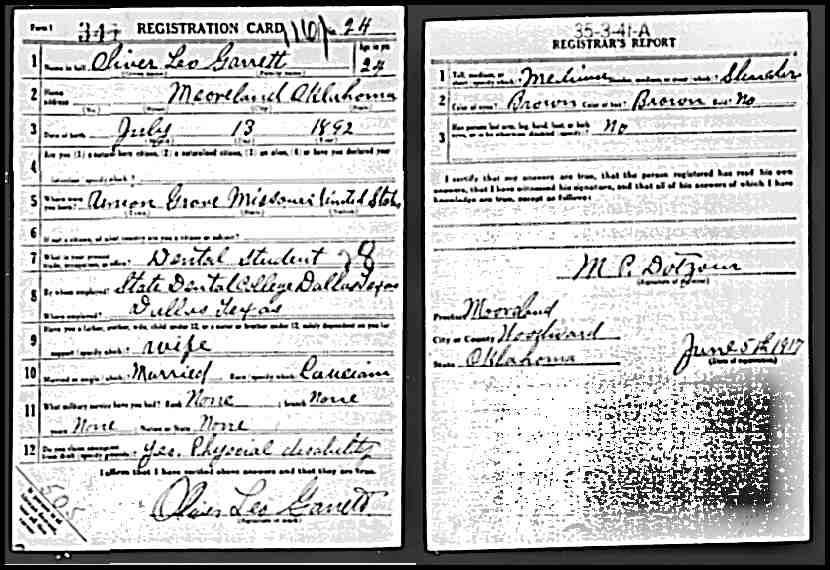 Form 1 347 REGISTRATION CARD 1161 - 24
1 Name in full Oliver Leo Garrett Age in yrs. 24
(Given name) (Family name)
2 Home address Mooreland Oklahoma
(No.) (Street) (City) (State)
3 Date of birth July 13 1892
(Month) (Day) (Year)
4 Are you (1) a natural born citizen, (2) a naturalized citizen, (3) an alien, (4) or have you declared your
intention (specify which)?
5 Where were you born? Grove Missouri United States
(Town) (State) (Nation)
6 If not a citizen, of what country are you a citizen or subject?
7 What is your present trade, occupation, or office? Dental Student 28
8 By whom employed? State Dental College Dallas Texas
Where employed? Dallas Texas
9 Have you a father, mother, wife, child under 12, or a sister or brother under 12, solely dependent on you for
support (specify which)? wife
10 Married or single (which)? Married Race (specify which)? Caucian
11 What military service have you had? Rank None ; branch None
years None ; Nation or State None
12 Do you claim exemption from draft (specify grounds)? Yes. Physical disability
I affirm that I have verified above answers and that they are true.
Oliver Leo Garrett
(Signature or mark)
505
35-3-41-A
REGISTRAR'S REPORT
1 Tall, medium, or short (specify which)? Medium Slender, medium, or stout (which)? Slender
2 Color of eyes? Brown Color of hair? Brown Bald? No
3 Has person lost arm, leg, hand, foot, or both eyes, or is he otherwise disabled (specify)? No
I certify that my answers are true, that the person registered has read his own
answers, that I have witnessed his signature, and that all of his answers of which I have
knowledge are true, except as follows:
M. P. Dotzour
(Signature of registrar)
Precinct Mooreland
City or County Woodward
State Oklahoma June 5th 1917
(Date of registration)